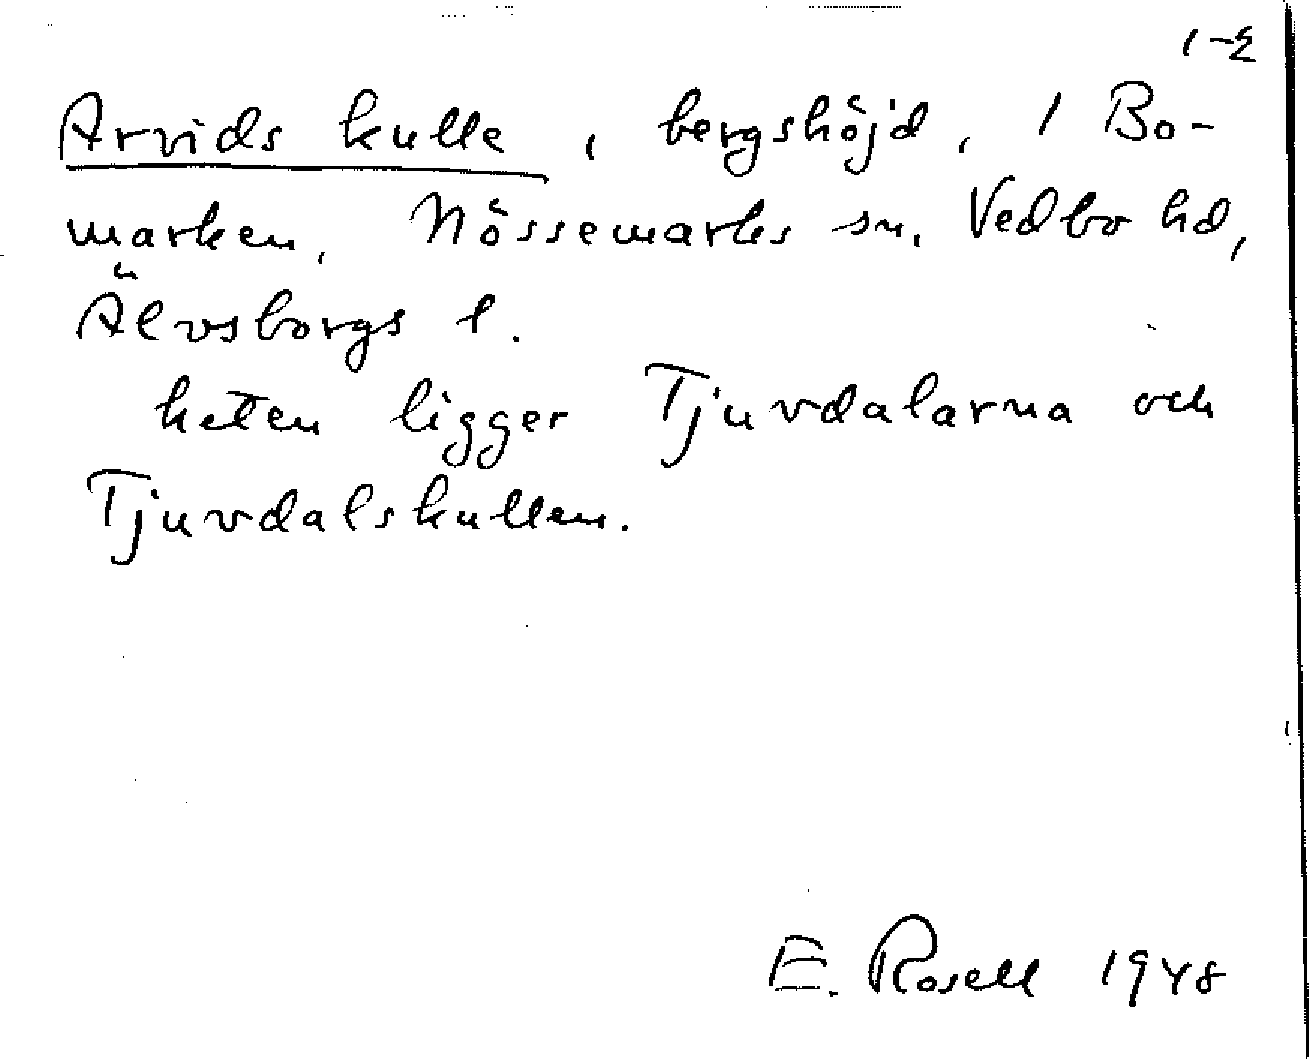 Arvids kulle, bergshöjd, 1 Bo-
marken, Nössemarks sn, Vedbo hd,
Älvsborgs l.
heten ligger Tjuvdalarna och
Tjuvdalskullen.
E. Rosell 1948